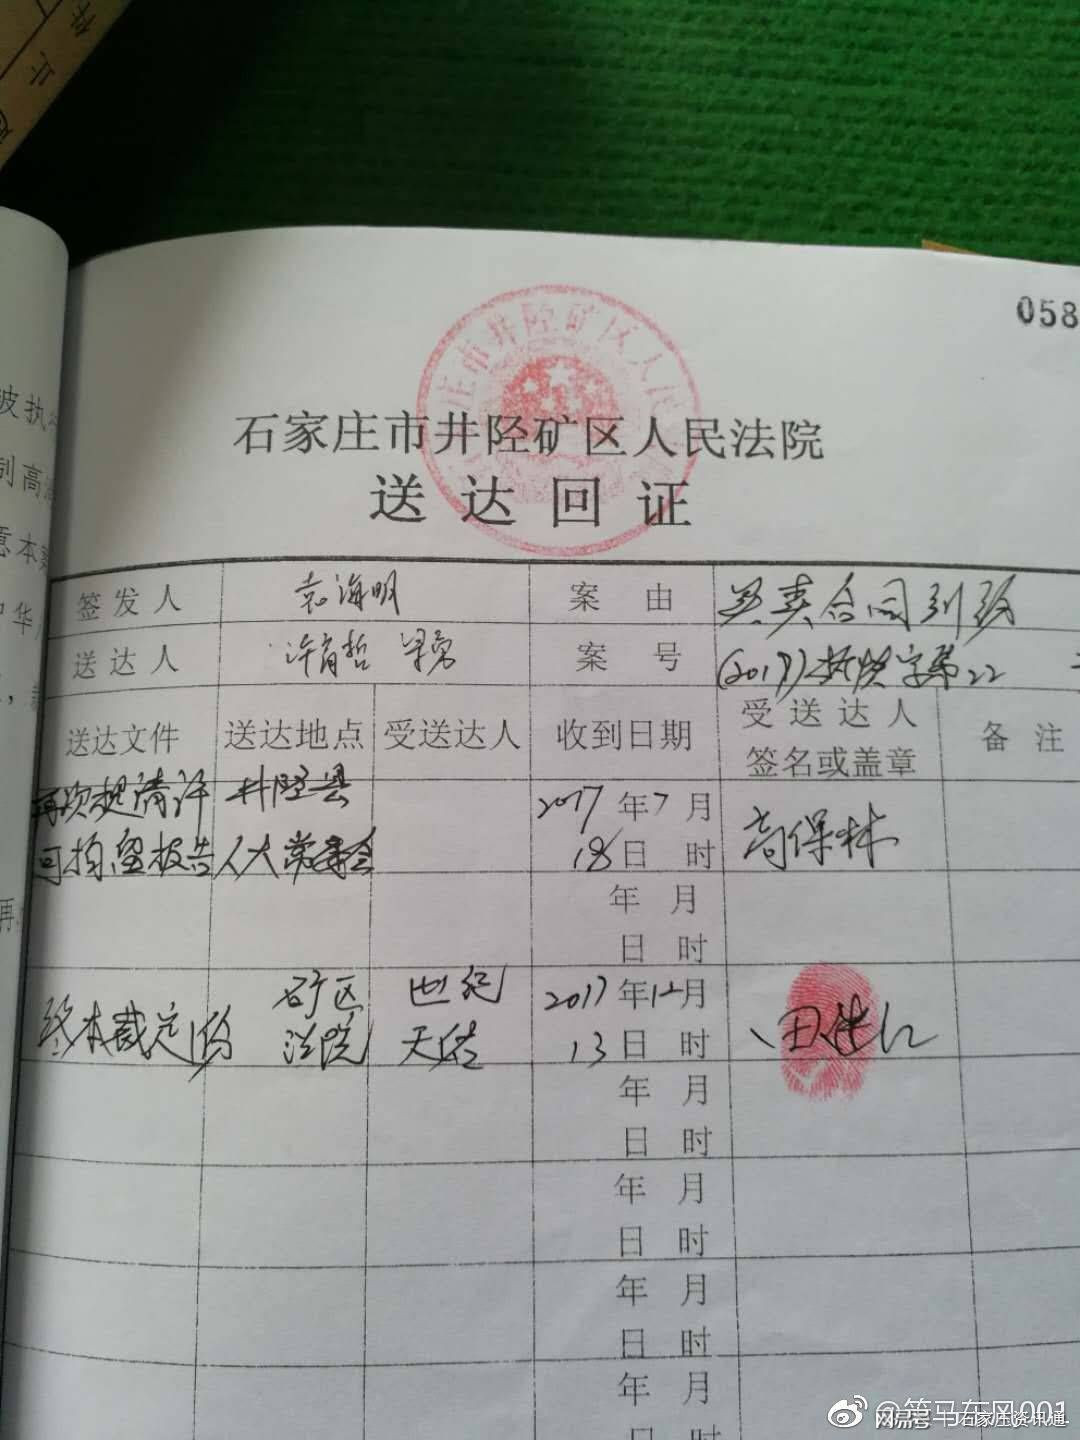 058
石家庄市井陉矿区人民法院
送达回证
签发人 袁海明 案由 买卖合同纠纷
送达人 案号 (2017)
送达文件 送达地点 受送达人 收到日期 受送达人签名或盖章 备注
再次提请许可拘留报告 井陉县人大常委会 2017年7月18日 时 高保林
年 月
日 时
终本裁定 矿区法院 世纪天佑 2017年12月13日 时 田
年 月
日 时
年 月
日 时
年 月
日 时
年 月
日 时
被执行
制高
意本案
中华
再
@策马东风001
网易号 石家庄资讯通